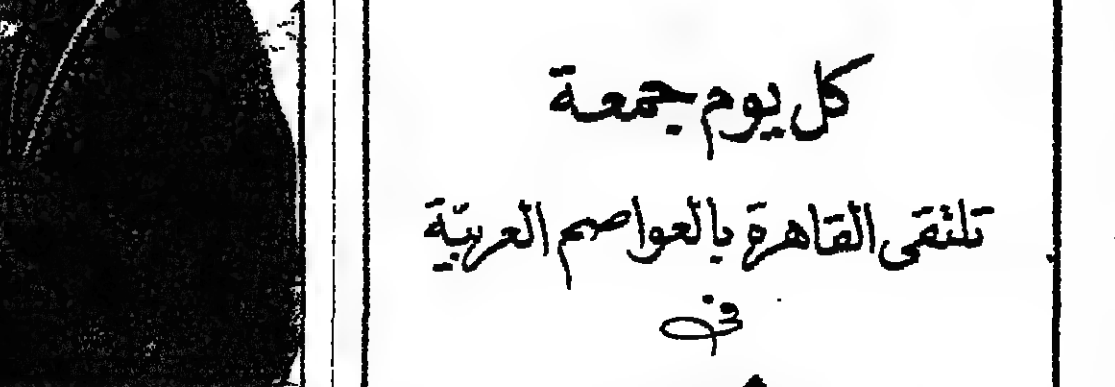 كل يوم جمعة
تلتقى القاهرة بالعواصم العربيّة
في